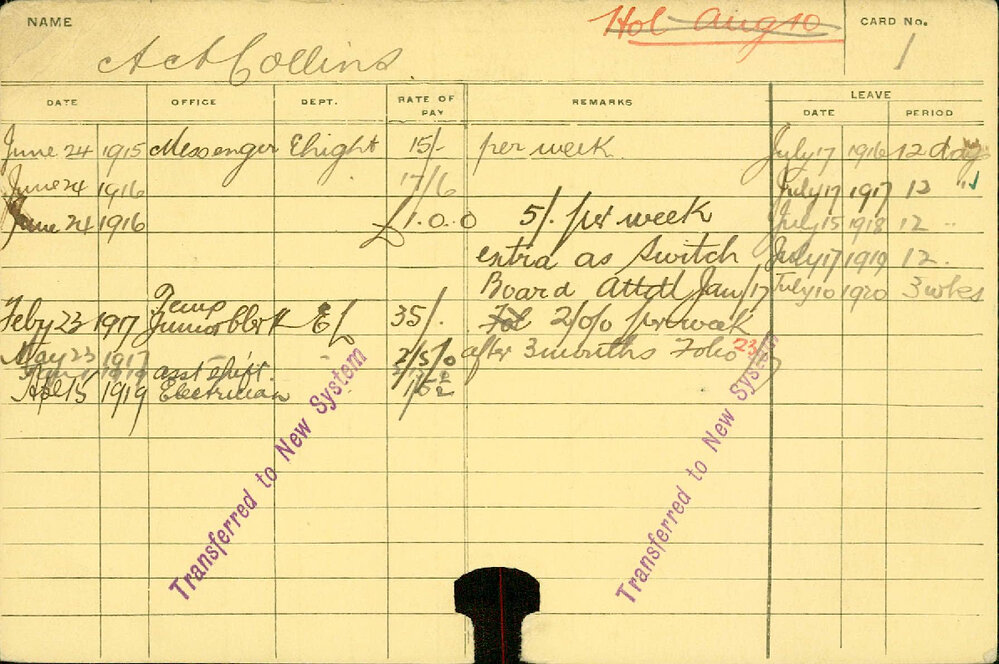 NAME
Hol Aug 10
CARD No.
A C A Collins
1
DATE OFFICE DEPT. RATE OF PAY REMARKS LEAVE
DATE PERIOD
June 24 1915 Messenger Elight 15/- per week. July 17 1916 12 days
June 24 1916 17/6 July 17 1917 12 "
June 24 1916 £1.0.0 5/. per week July 15 1918 12 "
extra as Switch July 17 1919 12.
Board Attdt Jan/17 July 10 1920 3 wks
Feby 23 1917 Temp Junior Clerk EL 35/. 2/0/0 per week
May 23 1917 2/5/0 after 3 months Folio 23
1919 asst shift
Apl 15 1919 Electrician
Transferred to New System
Transferred to New System